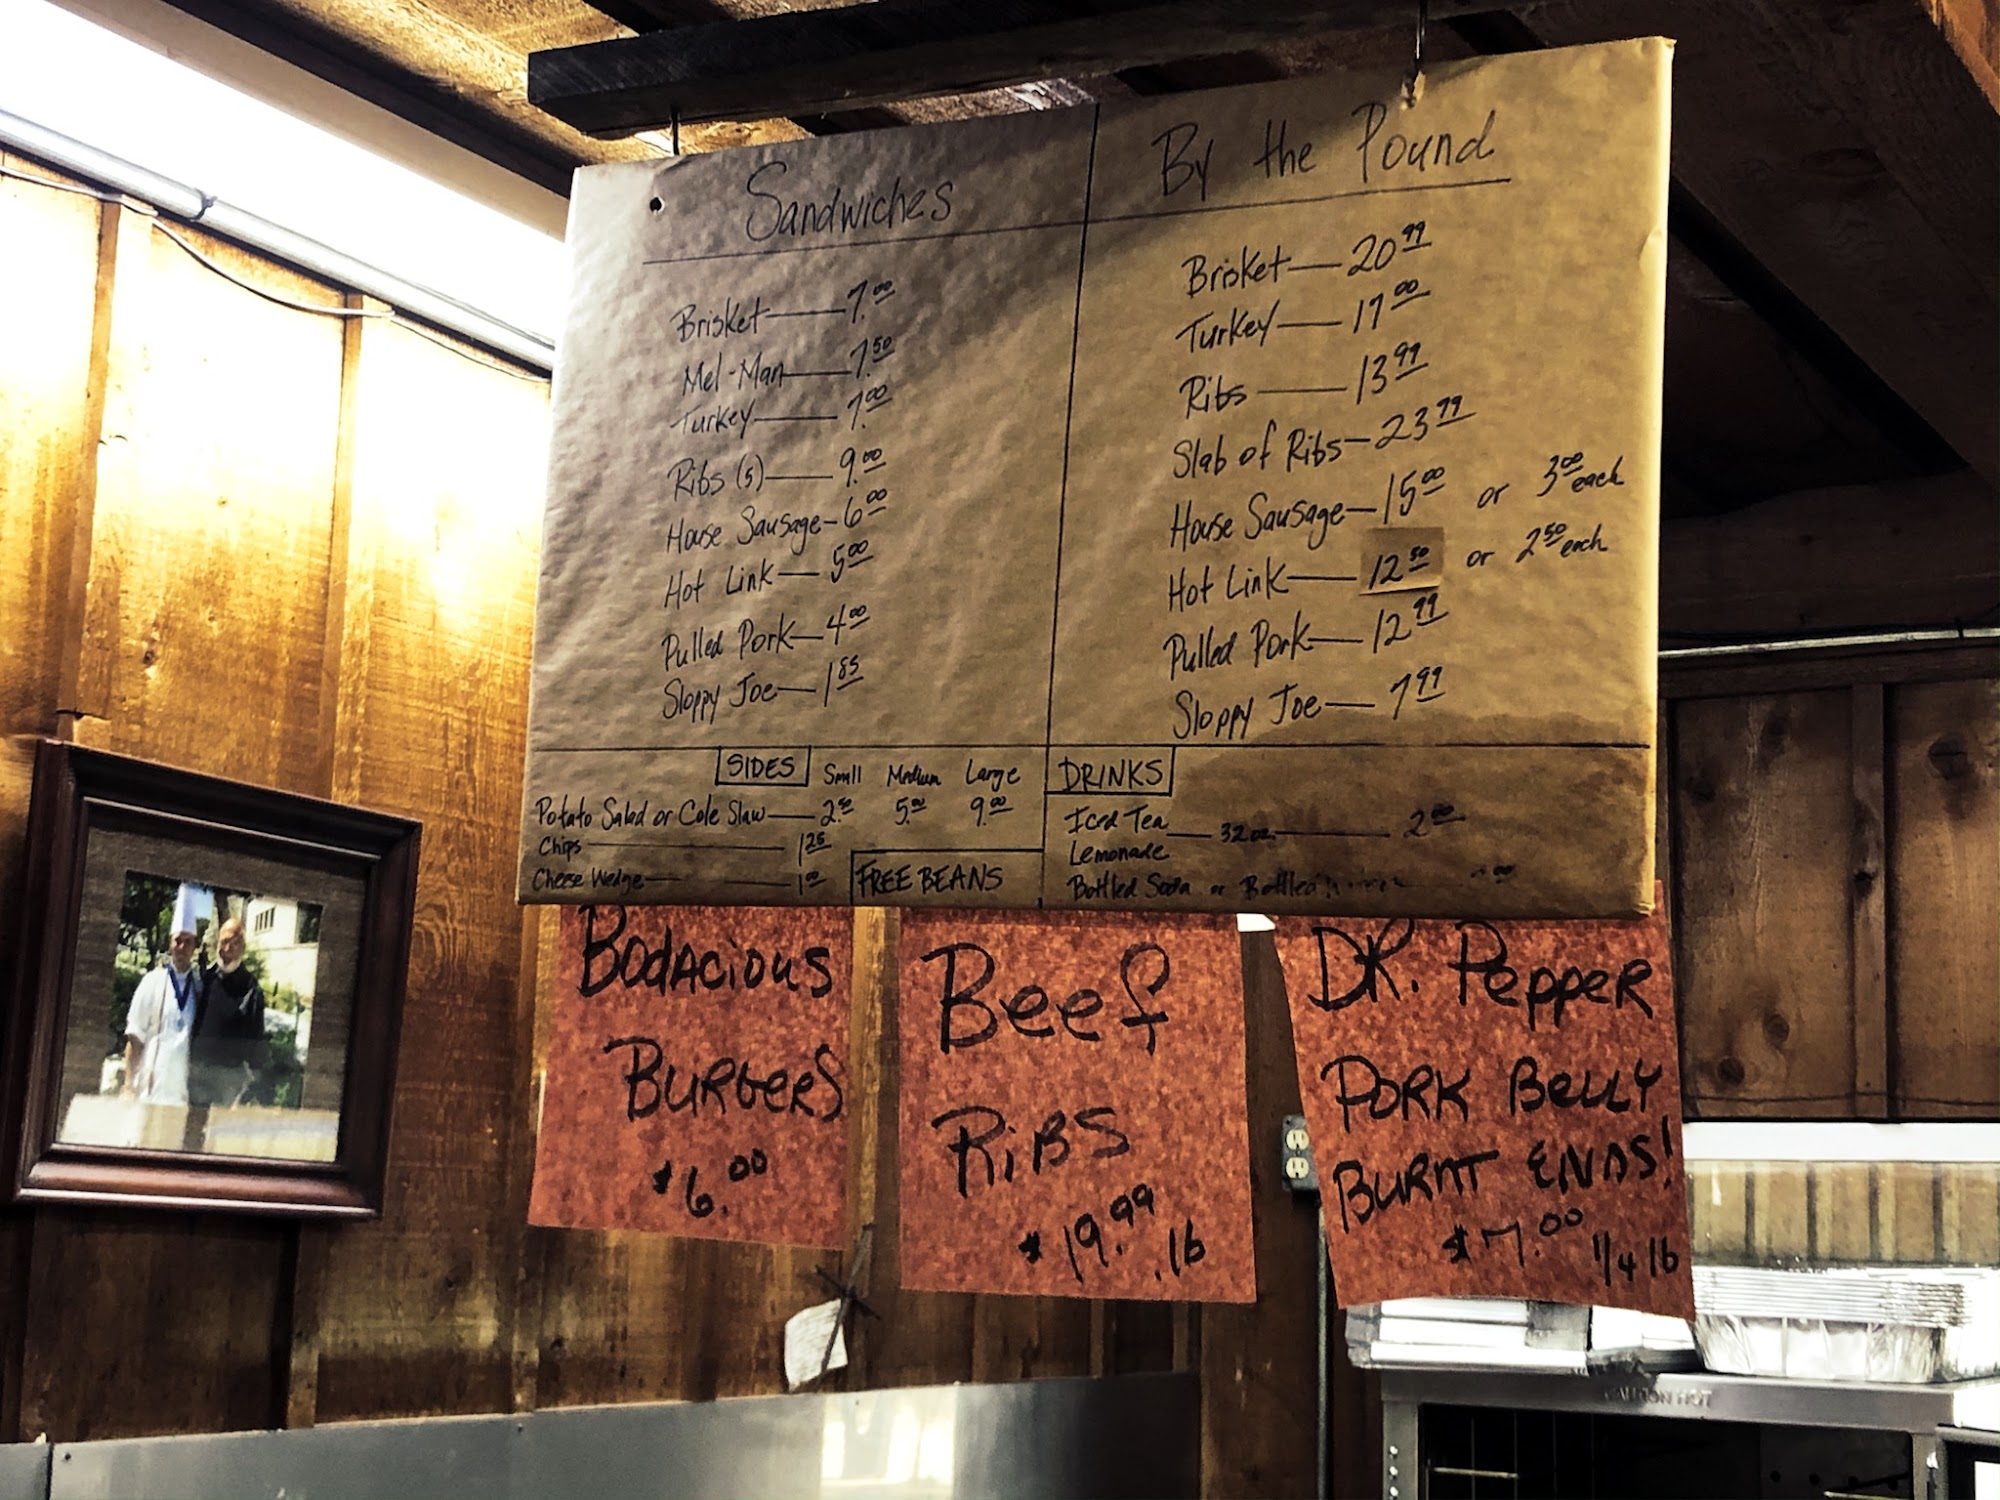 Sandwiches
Brisket — 7.00
Mel-Man — 7.50
Turkey — 7.00
Ribs (5) — 9.00
House Sausage — 6.00
Hot Link — 5.00
Pulled Pork — 4.00
Sloppy Joe — 1.85
By the Pound
Brisket — 20.99
Turkey — 17.00
Ribs — 13.99
Slab of Ribs — 23.99
House Sausage — 15.00 or 3.00 each
Hot Link — 12.50 or 2.50 each
Pulled Pork — 12.99
Sloppy Joe — 7.99
SIDES Small Medium Large
Potato Salad or Cole Slaw — 2.50 5.00 9.00
Chips — 1.25
Cheese Wedge — 1.00
FREE BEANS
DRINKS
Iced Tea
Lemonade — 32oz — 2.00
Bottled Soda or Bottled
BODACIOUS
BURGERS
$6.00
Beef
RIBS
$19.99 lb
DR. PEPPER
PORK BELLY
BURNT ENDS!
$7.00 1/4 lb
CAUTION HOT